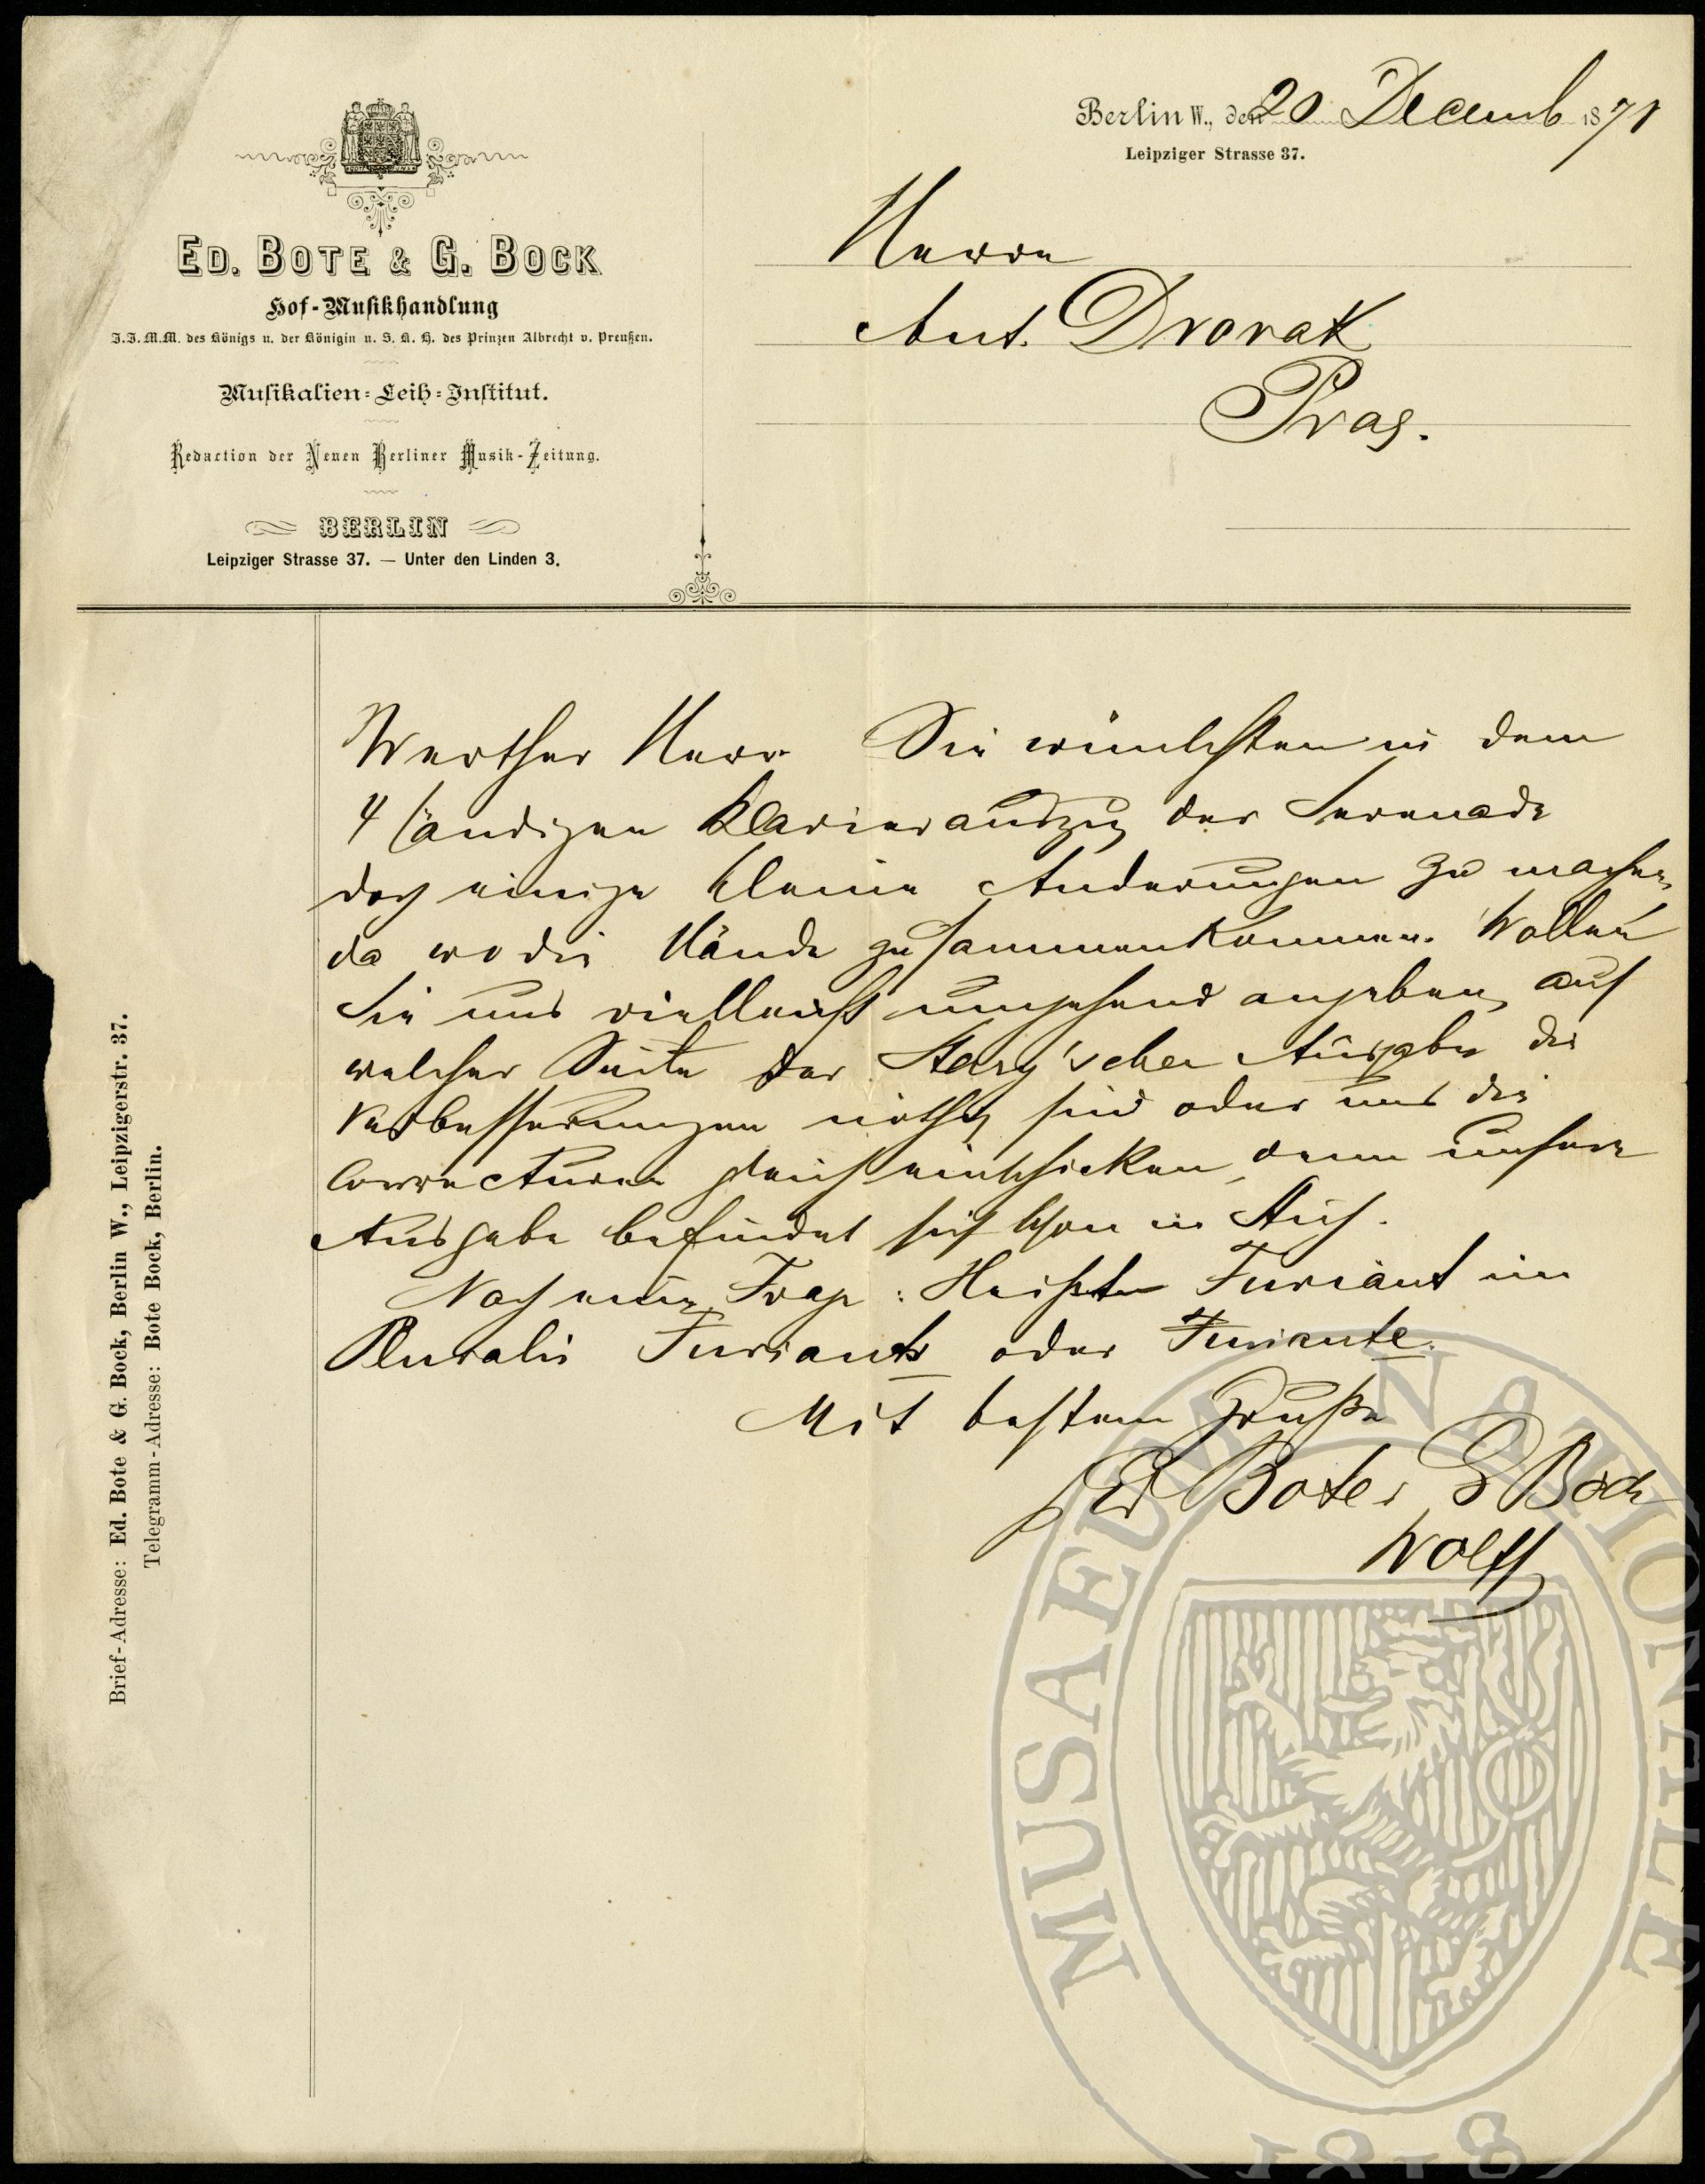 Berlin W., den 20 Decemb 1878
Leipziger Strasse 37.
ED. BOTE & G. BOCK
Hof-Musikhandlung
J.J.M.M. des Königs u. der Königin u. S. K. H. des Prinzen Albrecht v. Preußen.
Musikalien-Leih-Institut.
Redaction der Neuen Berliner Musik-Zeitung.
BERLIN
Leipziger Strasse 37. — Unter den Linden 3.
Herrn
Ant. Dvorak
Prag.
Brief-Adresse: Ed. Bote & G. Bock, Berlin W., Leipzigerstr. 37.
Telegramm-Adresse: Bote Bock, Berlin.
Werther Herr Sie wünschten in dem
4händigen Klavierauszug der Serenade
doch einige kleine Änderungen zu machen,
da wo die Hände zusammenkommen. Wollen
Sie uns vielleicht umgehend angeben, auf
welcher Seite der Stary'schen Ausgabe die
Verbesserungen nöthig sind oder uns die
Correcturen gleich einschicken, denn unsere
Ausgabe befindet sich schon im Stich.
Noch eine Frage: Heißt Furiant im
Pluralis Furianti oder Furiante.
Mit bestem Gruße
Ed Bote & G Bock
Wolff
MUSAEUM NATIONALE
1818